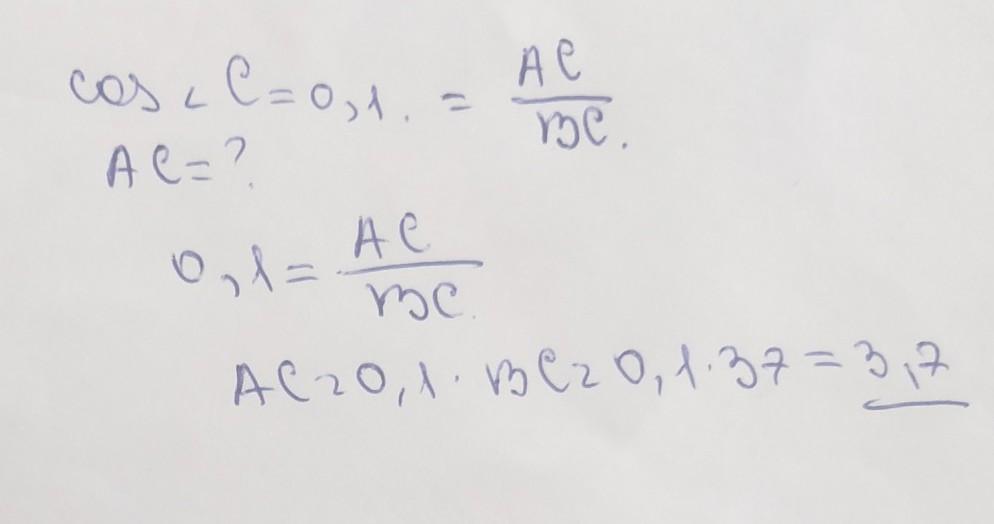 cos < C = 0,1. = AC / BC.
AC = ?
0,1 = AC / BC.
AC = 0,1 · BC = 0,1 · 37 = 3,7